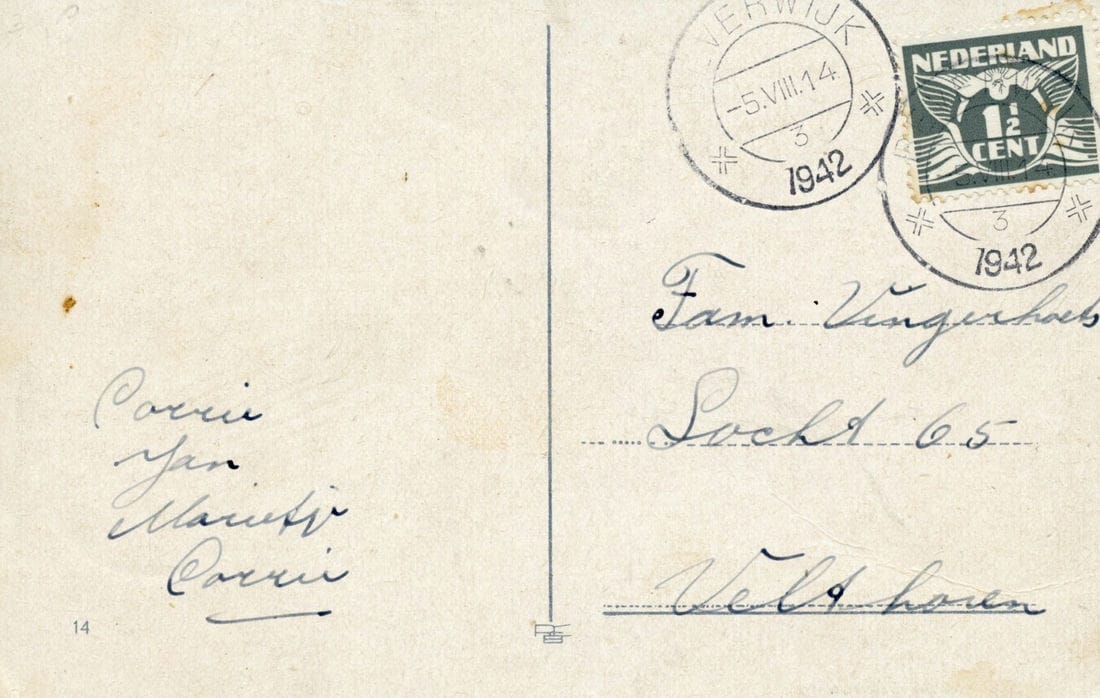 BEVERWIJK
-5.VIII.14
3
1942
NEDERLAND
1 1/2
CENT
-5.VIII.14
3
1942
Fam. Vingerhoets
Locht 65
Velthoven
Corrie
Jan
Marietje
Corrie
14